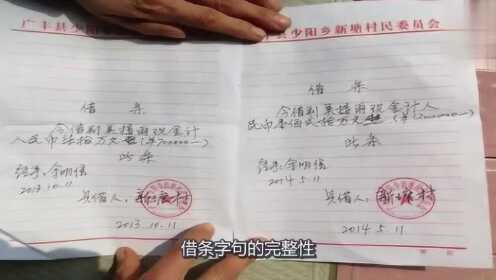 广丰县少阳乡
县少阳乡新塘村民委员会
借条
今借到
现金计
人民币柒拾万元
此条
经手：余明强
2013.10.11
具借人：新塘村
2013.10.11
借条
今借到
现金计人
民币壹佰贰拾万元
此条
经手：余明强
2014.5.11
具借人：新塘村
2014.5.11
借条字句的完整性